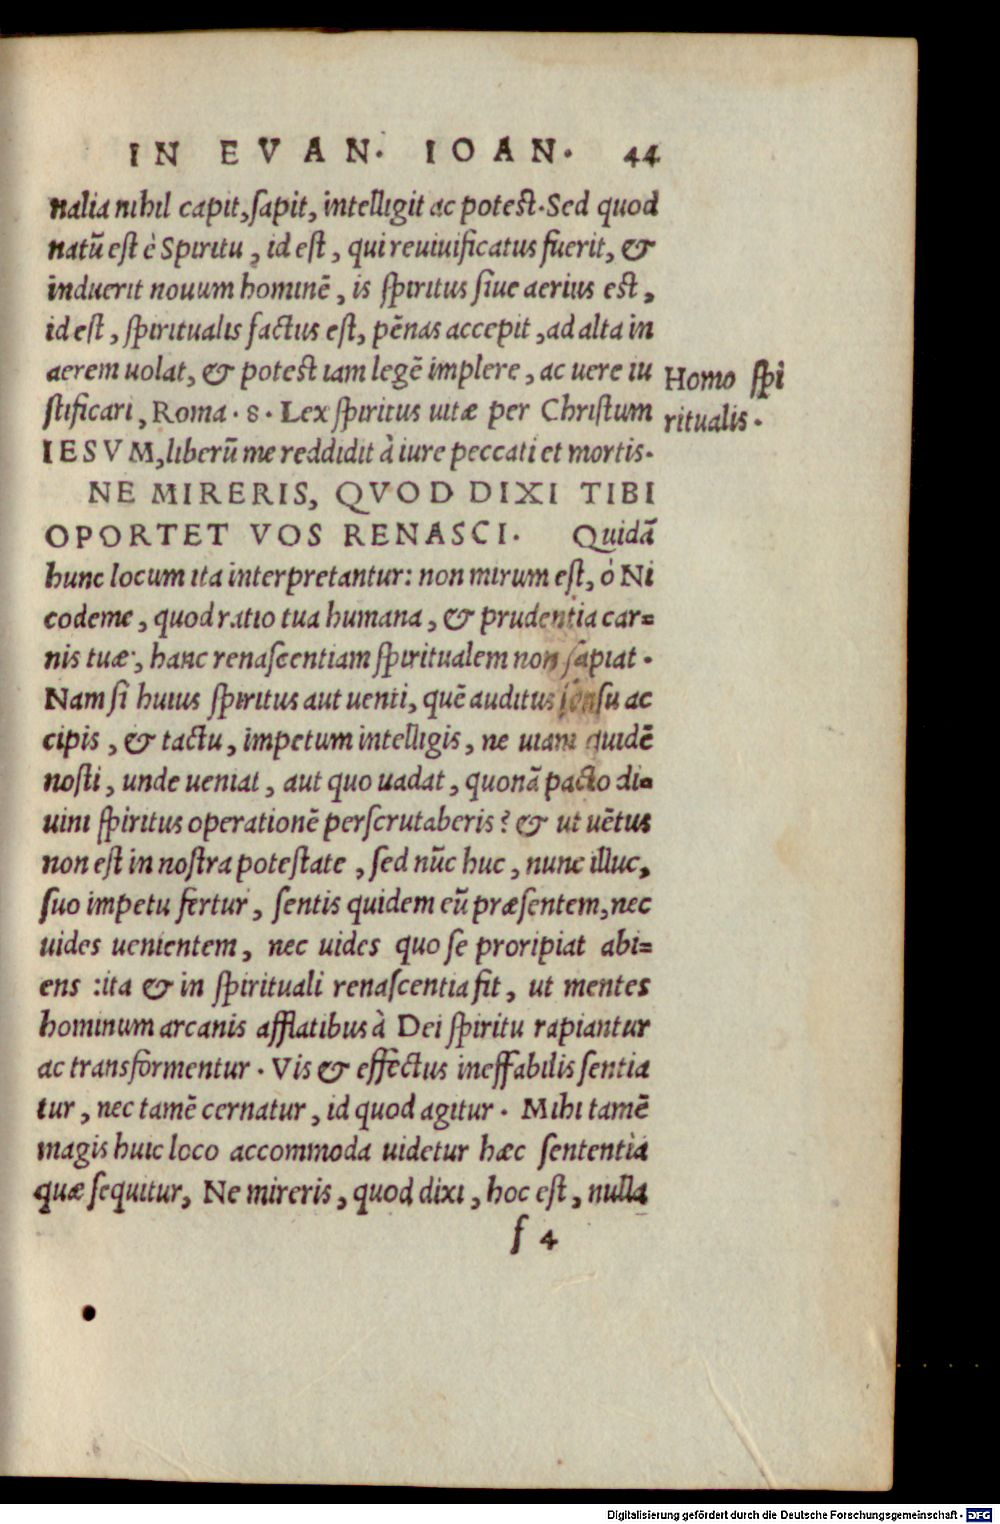 IN EVAN. IOAN. 44
nalia nihil capit, sapit, intelligit ac potest. Sed quod
natũ est è Spiritu, id est, qui reuiuificatus fuerit, &
induerit nouum hominẽ, is spiritus siue aerius est,
id est, spiritualis factus est, pẽnas accepit, ad alta in
aerem uolat, & potest iam legẽ implere, ac uere iu
Homo spi
stificari, Roma. 8. Lex spiritus uitæ per Christum
ritualis.
IESVM, liberũ me reddidit à iure peccati et mortis.
NE MIRERIS, QVOD DIXI TIBI
OPORTET VOS RENASCI. Quidã
hunc locum ita interpretantur: non mirum est, ò Ni
codeme, quod ratio tua humana, & prudentia car=
nis tuæ, hanc renascentiam spiritualem non sapiat.
Nam si huius spiritus aut uenti, quẽ auditus sensu ac
cipis, & tactu, impetum intelligis, ne uiam quidẽ
nosti, unde ueniat, aut quo uadat, quonã pacto di=
uini spiritus operationẽ perscrutaberis? & ut uẽtus
non est in nostra potestate, sed nũc huc, nunc illuc,
suo impetu fertur, sentis quidem eũ præsentem, nec
uides uenientem, nec uides quo se proripiat abi=
ens: ita & in spirituali renascentia fit, ut mentes
hominum arcanis afflatibus à Dei spiritu rapiantur
ac transformentur. Vis & effectus ineffabilis sentia
tur, nec tamẽ cernatur, id quod agitur. Mihi tamẽ
magis huic loco accommoda uidetur hæc sententia
quæ sequitur, Ne mireris, quod dixi, hoc est, nulla
f 4
Digitalisierung gefördert durch die Deutsche Forschungsgemeinschaft - DFG